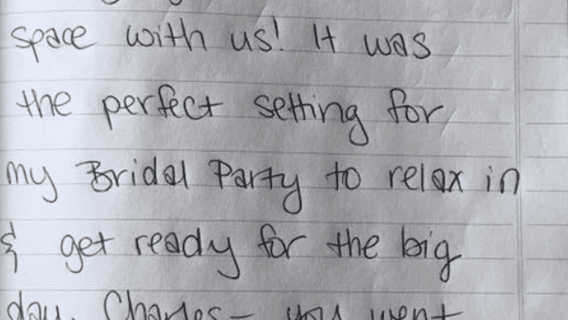 space with us! It was
the perfect setting for
my Bridal Party to relax in
& get ready for the big
day. Charles- you went